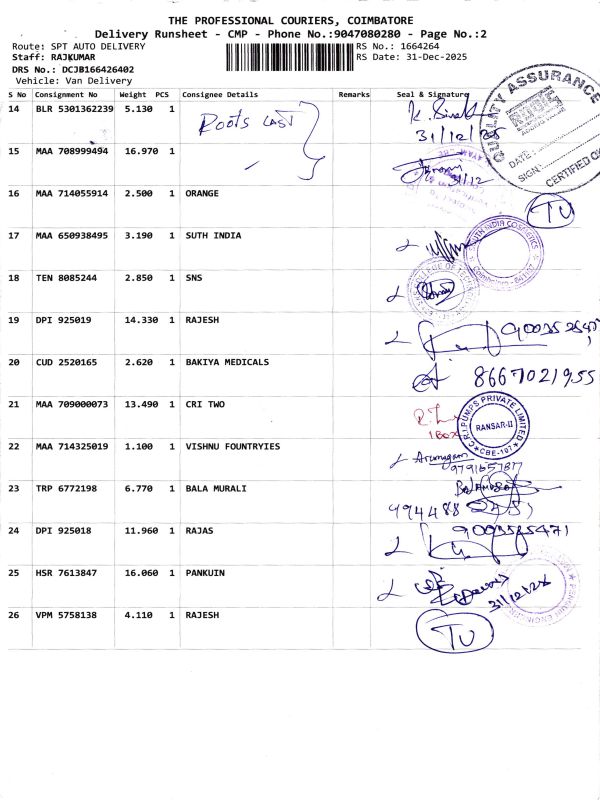 THE PROFESSIONAL COURIERS, COIMBATORE
Delivery Runsheet - CMP - Phone No.:9047080280 - Page No.:2
Route: SPT AUTO DELIVERY
RS No.: 1664264
Staff: RAJKUMAR
RS Date: 31-Dec-2025
DRS No.: DCJB166426402
Vehicle: Van Delivery
S No Consignment No Weight PCS Consignee Details Remarks Seal & Signature
14 BLR 5301362239 5.130 1 Roots Cast
31/12/25
QUALITY ASSURANCE
DATE:
SIGN:
CERTIFIED
15 MAA 708999494 16.970 1
31/12
16 MAA 714055914 2.500 1 ORANGE
TU
17 MAA 650938495 3.190 1 SUTH INDIA
SOUTH INDIA COSMETICS
Coimbatore
18 TEN 8085244 2.850 1 SNS
COLLEGE OF TECH
19 DPI 925019 14.330 1 RAJESH
20 CUD 2520165 2.620 1 BAKIYA MEDICALS
8667021955
21 MAA 709000073 13.490 1 CRI TWO
1 Box
C.R.I. PUMPS PRIVATE LIMITED
RANSAR-II
CBE-107
22 MAA 714325019 1.100 1 VISHNU FOUNTRYIES
Arumugam
23 TRP 6772198 6.770 1 BALA MURALI
24 DPI 925018 11.960 1 RAJAS
9003525471
25 HSR 7613847 16.060 1 PANKUIN
31/12/25
26 VPM 5758138 4.110 1 RAJESH
TU